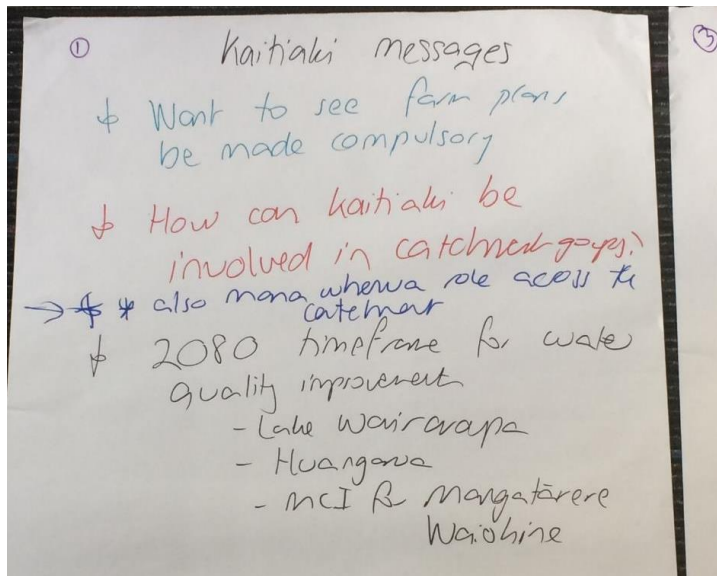 ①
Kaitiaki messages
Want to see farm plans
be made compulsory
How can kaitiaki be
involved in catchment groups?
→ * * also mana whenua role across the
catchment
2080 timeframe for water
quality improvement
- Lake Wairarapa
- Huangarua
- MCI for Mangatārere
Waiohine
③